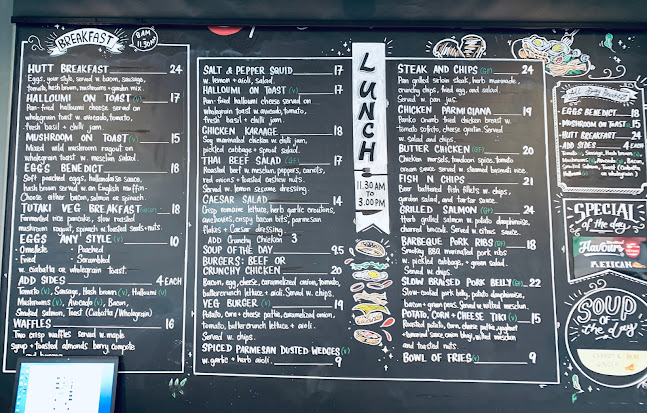 BREAKFAST
8AM
11.30AM
HUTT BREAKFAST 24
Eggs, your style, served w. bacon, sausage,
tomato, hash brown, mushrooms + garden mix.
HALLOUMI ON TOAST (V) 17
Pan-fried halloumi cheese served on
wholegrain toast w. avocado, tomato,
fresh basil + chilli jam.
MUSHROOM ON TOAST (V) 15
Mixed wild mushroom ragout on
wholegrain toast w. mesclun salad.
EGG'S BENEDICT 18
Soft poached eggs, hollandaise sauce,
hash brown served on an English muffin.
Choose either bacon, salmon or spinach.
TUTAKI VEG BREAKFAST 18
Fermented rice pancake, slow roasted
mushroom ragout, spinach w. toasted seeds + nuts.
EGGS 'ANY' STYLE (V) 10
- Omelette - Poached
- Fried - Scrambled
w. ciabatta or wholegrain toast.
ADD SIDES 4 EACH
Tomato (V), Sausage, Hash brown (V), Halloumi (V)
Mushrooms (V), Avocado (V), Bacon,
Smoked Salmon, Toast (Ciabatta/Wholegrain)
WAFFLES 16
Two crisp waffles served w. maple
syrup + toasted almonds, berry compote
SALT & PEPPER SQUID 17
w. lemon + aioli, salad.
HALLOUMI ON TOAST (V) 17
Pan-fried halloumi cheese served on
wholegrain toast w. avocado, tomato,
fresh basil + chilli jam.
CHICKEN KARAGE 18
Soy marinated chicken w. chilli jam,
pickled cabbage + sprout salad.
THAI BEEF SALAD (GF) 17
Roasted beef w. mesclun, peppers, carrots,
red onions + toasted cashew nuts.
Served w. lemon sesame dressing.
CAESAR SALAD 14
Crisp romaine lettuce, herb garlic croutons,
anchovies, crispy bacon bits, parmesan
flakes + Caesar dressing.
ADD Crunchy Chicken 3
SOUP OF THE DAY 9.5
BURGERS: BEEF OR
CRUNCHY CHICKEN 20
Bacon, egg, cheese, caramelized onion, tomato,
buttercrunch lettuce + aioli. Served w. chips.
VEG BURGER (V) 19
Potato, corn + cheese pattie, caramelized onion,
tomato, buttercrunch lettuce + aioli.
Served w. chips.
SPICED PARMESAN DUSTED WEDGES (V)
w. garlic + herb aioli. 9
LUNCH
11.30 AM
TO
3.00PM
STEAK AND CHIPS (GF) 24
Pan grilled sirloin steak, herb marinade
crunchy chips, fried egg, and salad.
Served w. pan jus.
CHICKEN PARMIGIANA 19
Panko crumb fried chicken breast w.
tomato sofrito, cheese gratin. Served
w. salad and chips.
BUTTER CHICKEN (GF) 20
Chicken morsels, tandoori spice, tomato
onion sauce served w. steamed basmati rice.
FISH N CHIPS 21
Beer battered fish fillets w. chips,
garden salad, and tartar sauce.
GRILLED SALMON (GF) 24
Herb grilled salmon w. potato dauphinoise,
charred broccoli. Served w. citrus sauce.
BARBEQUE PORK RIBS (GF) 18
Smokey BBQ marinated pork ribs
w. pickled cabbage + green salad.
Served w. chips.
SLOW BRAISED PORK BELLY (GF) 22
Slow-cooked pork belly, potato dauphinoise,
bacon + green peas. Served w. wilted mesclun.
POTATO, CORN + CHEESE TIKI (V) 15
Roasted potato, corn, cheese pattie, yoghurt
+ almond sauce, corn bhaji, wilted mesclun
and toasted nuts.
BOWL OF FRIES (V) 9
EGGS BENEDICT 18
MUSHROOM ON TOAST 15
HUTT BREAKFAST 24
ADD SIDES 4 EACH
SPECIAL
of the day
Flavours
MEXICAN
SOUP
OF
the day